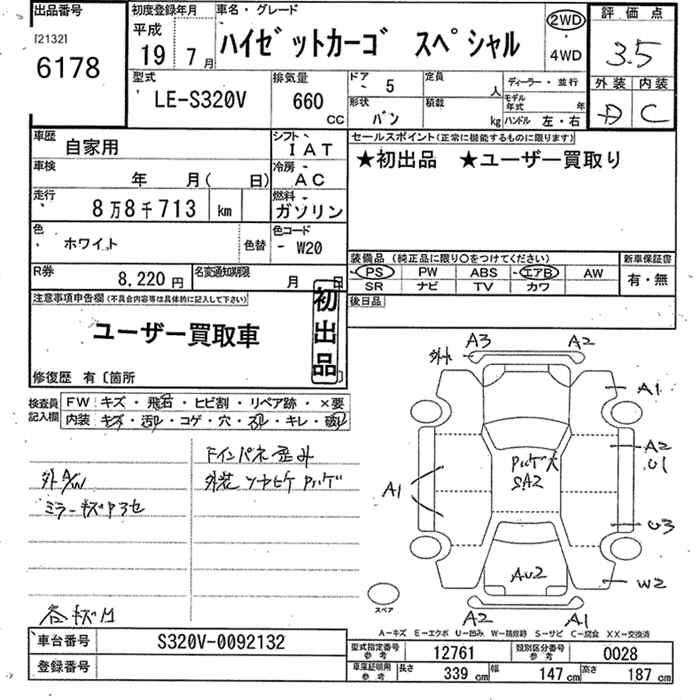 出品番号
[2132]
6178
初度登録年月
平成
19年7月
車名・グレード
ハイゼットカーゴ スペシャル
2WD
・
4WD
評価点
3.5
外装 内装
D C
型式
LE-S320V
排気量
660
cc
ドア
- 5
形状
バン
定員
人
積載
kg
ディーラー・並行
モデル年式 年
ハンドル 左・右
車歴
自家用
シフト
IAT
車検
年 月( 日)
冷房
AC
走行
8万8千713 km
燃料
ガソリン
色
ホワイト
色替
色コード
- W20
R券
8,220円
名変通知期限
月 日
セールスポイント(正常に機能するものに限ります)
★初出品 ★ユーザー買取り
装備品(純正品に限り○をつけてください)
PS PW ABS エアB AW
SR ナビ TV カワ
新車保証書
有・無
後日品
注意事項申告欄(不具合内容等は具体的に記入して下さい)
ユーザー買取車
初出品
修復歴 有〔箇所
検査員記入欄
FW キズ・飛石・ヒビ割・リペア跡・×要
内装 キズ・汚れ・コゲ・穴・・キレ・破れ
インパネ歪み
外A/W
外装
ミラーキズ
各キズ
外
A3
A2
A1
A2
U1
A1
U3
W2
大
SA2
AU2
A2
A1
スペア
A-キズ E-エクボ U-凹み W-補修跡 S-サビ C-腐食 XX-交換済
車台番号
S320V-0092132
登録番号
型式指定番号
参考
12761
類別区分番号
参考
0028
車庫証明用
参考
長さ
339 cm
幅
147 cm
高さ
187 cm